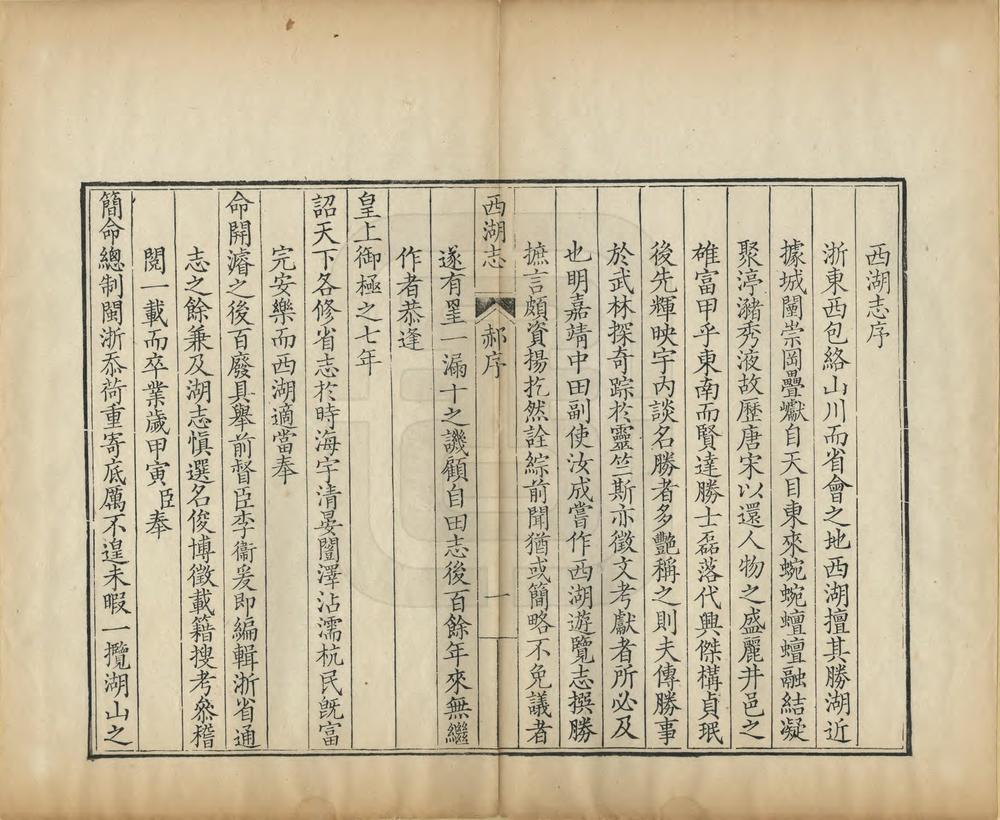 西湖志序
浙東西包絡山川而省會之地西湖擅其勝湖近
據城闉崇岡疊巘自天目東來蜿蜿蟺蟺融結凝
聚渟瀦秀液故歷唐宋以還人物之盛麗井邑之
雄富甲乎東南而賢達勝士磊落代興傑構貞珉
後先輝映宇內談名勝者多艷稱之則夫傳勝事
於武林探奇踪於靈竺斯亦徵文考獻者所必及
也明嘉靖中田副使汝成嘗作西湖遊覽志撰勝
摭言頗資揚扢然詮綜前聞猶或簡略不免議者
西湖志 郝序 一
遂有罣一漏十之譏顧自田志後百餘年來無繼
作者恭逢
皇上御極之七年
詔天下各修省志於時海宇清晏闓澤沾濡杭民旣富
完安樂而西湖適當奉
命開濬之後百廢具舉前督臣李衞爰即編輯浙省通
志之餘兼及湖志愼選名俊博徵載籍搜考叅稽
閱一載而卒業歲甲寅臣奉
簡命總制閩浙忝荷重寄底厲不遑未暇一攬湖山之